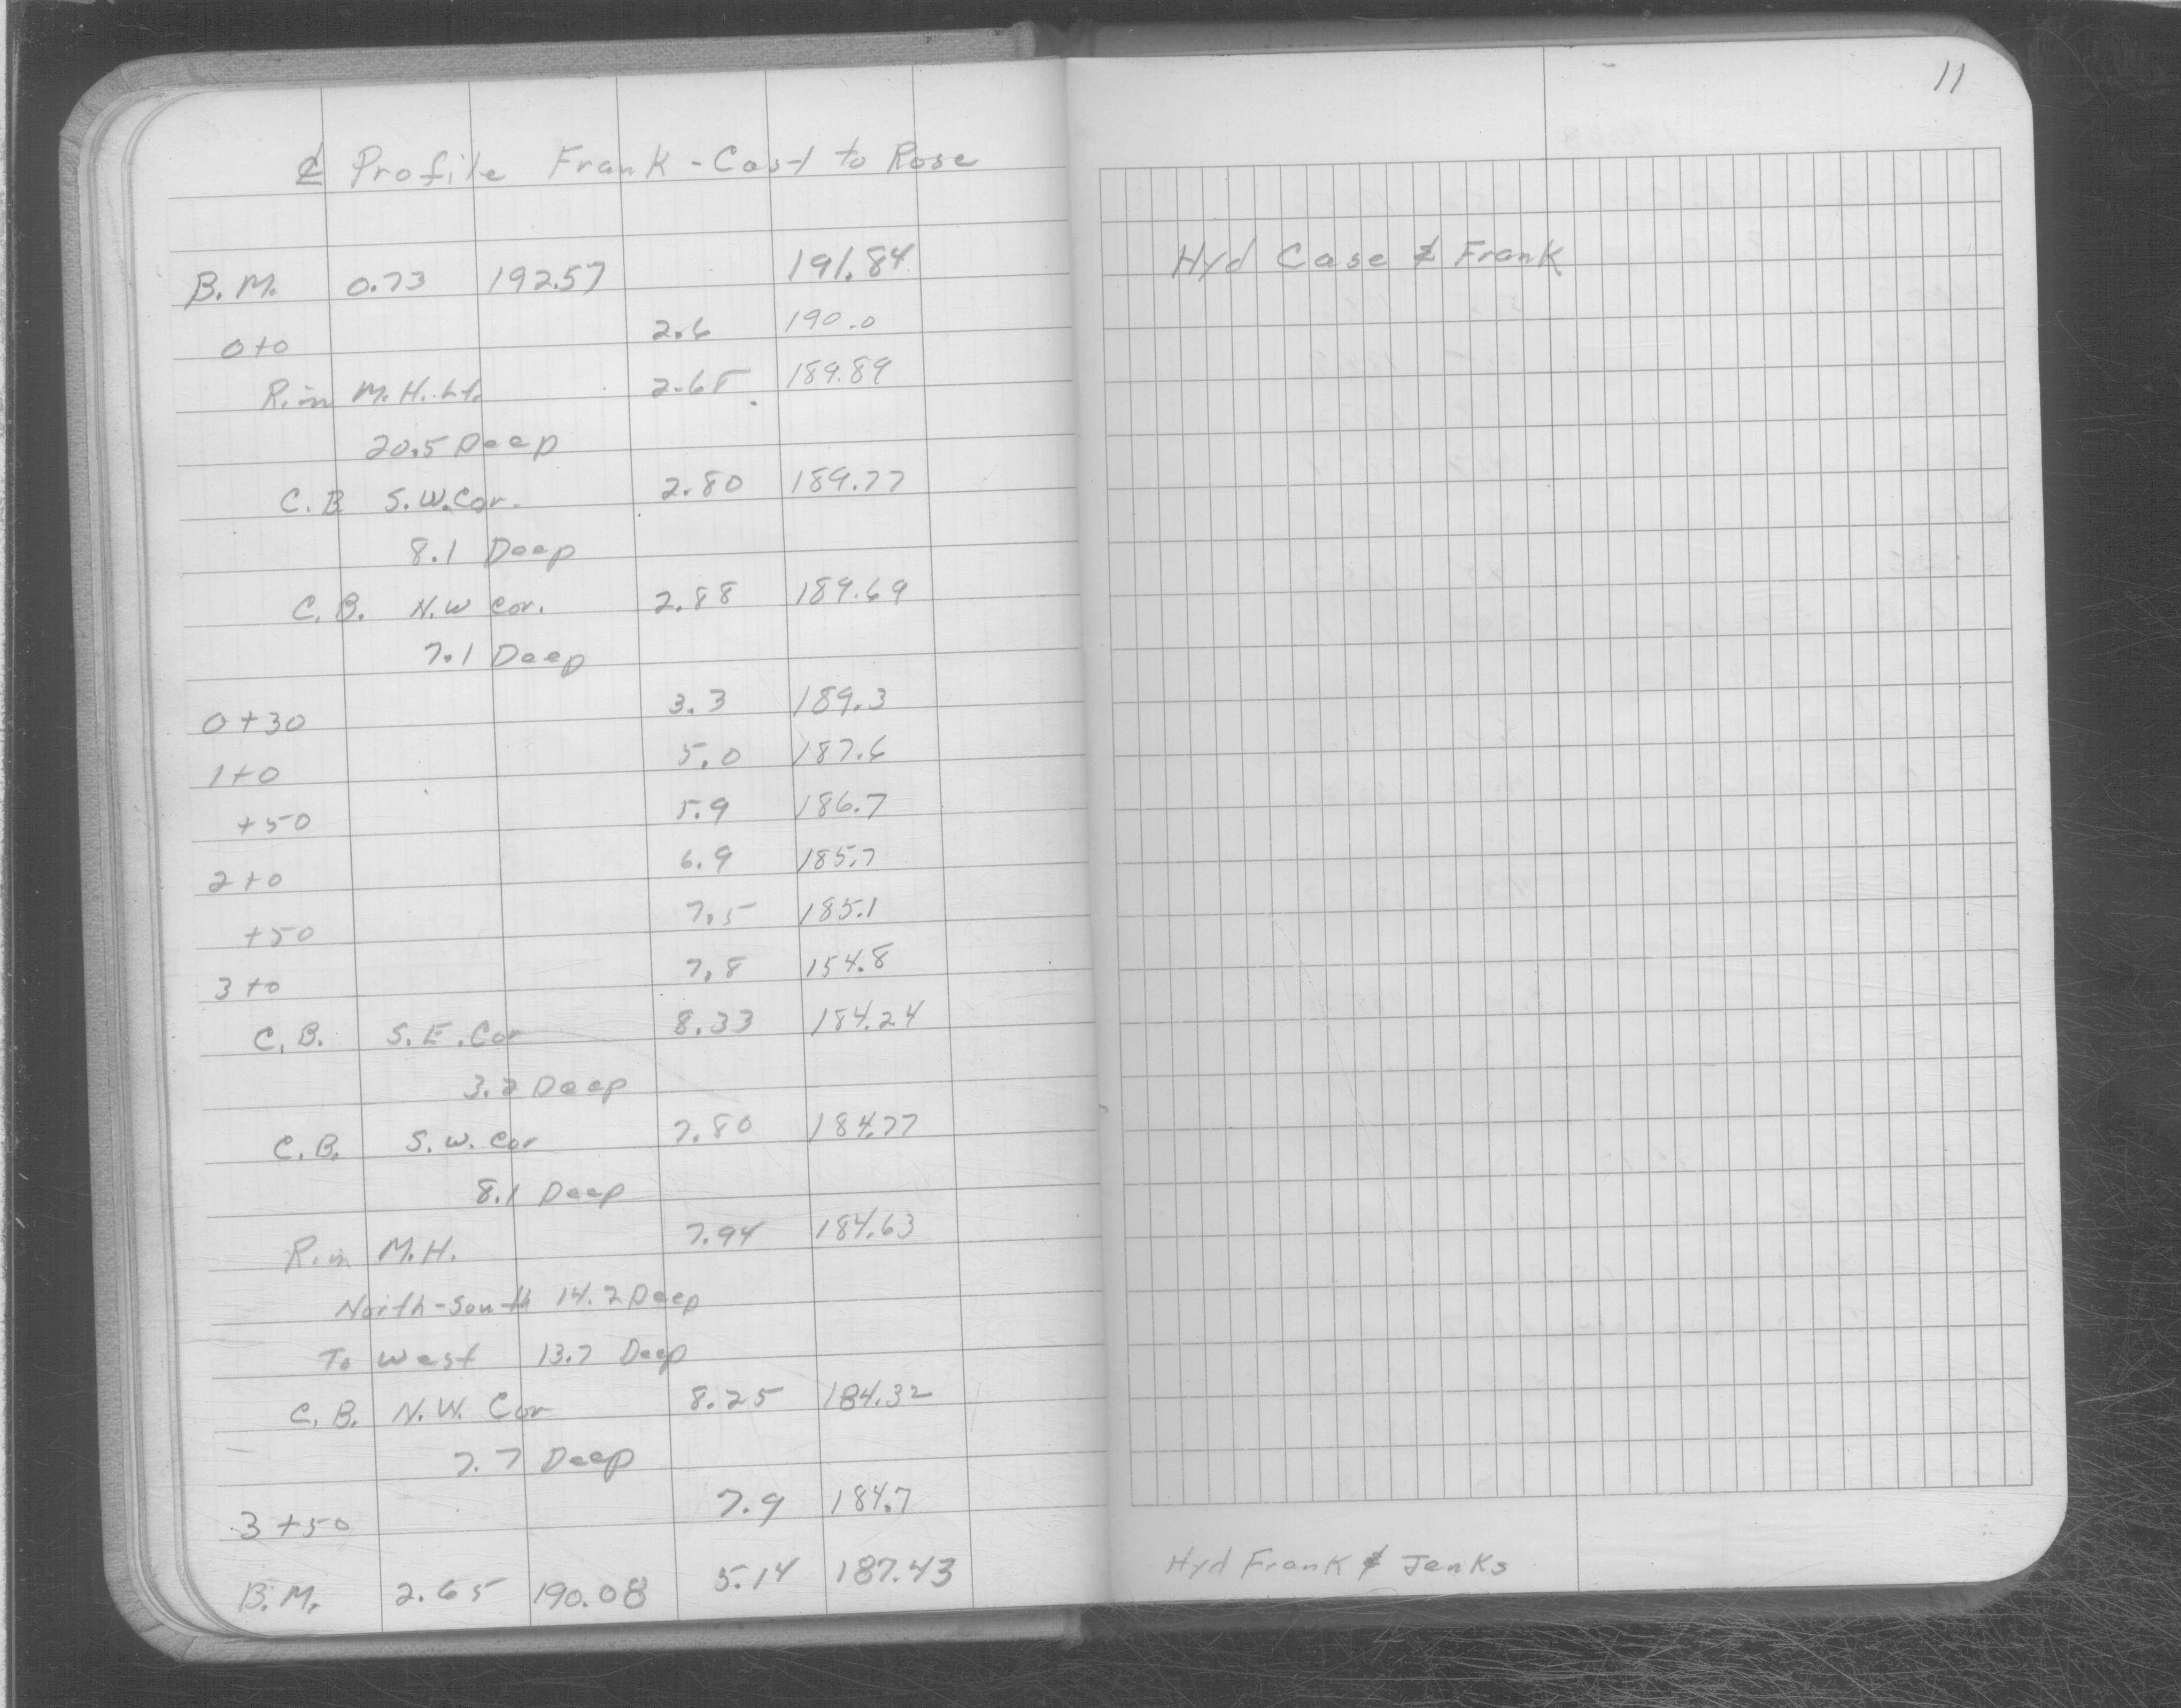 11
₵ Profile Frank - Cast to Rose
B.M. 0.73 192.57 191.84 Hyd Case & Frank
0+0 2.6 190.0
Rim M.H. Lt. 2.68 189.89
20.5 Deep
C.B S.W.Cor. 2.80 189.77
8.1 Deep
C.B. N.W Cor. 2.88 189.69
7.1 Deep
0+30 3.3 189.3
1+0 5.0 187.6
+50 5.9 186.7
2+0 6.9 185.7
+50 7.5 185.1
3+0 7.8 184.8
C.B. S.E.Cor 8.33 184.24
3.2 Deep
C.B. S.W. Cor 7.80 184.77
8.1 Deep
Rim M.H. 7.94 184.63
North-South 14.2 Deep
To West 13.7 Deep
C.B. N.W. Cor 8.25 184.32
7.7 Deep
3+50 7.9 184.7
B.M. 2.65 190.08 5.14 187.43 Hyd Frank & Jenks